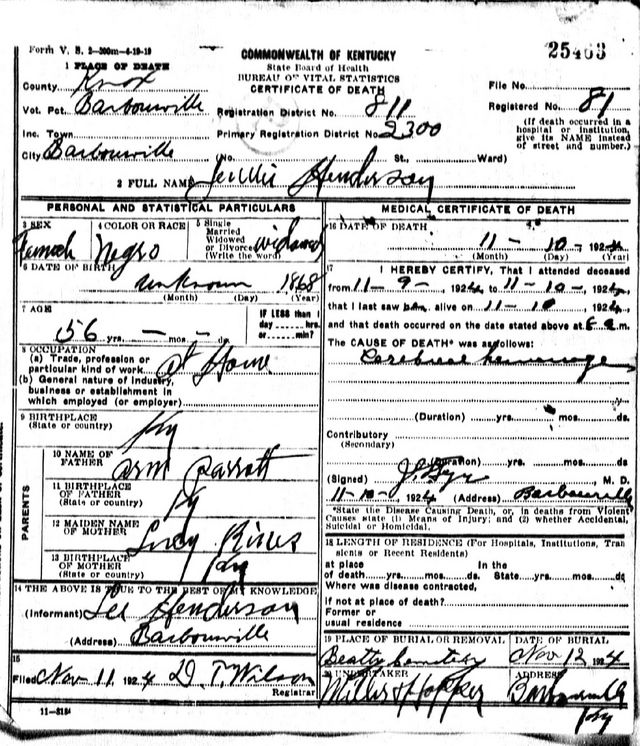 Form V. S. 2-300m-6-19-19
COMMONWEALTH OF KENTUCKY
State Board of Health
BUREAU OF VITAL STATISTICS
CERTIFICATE OF DEATH
25463
1 PLACE OF DEATH
County Knox
File No.
Vot. Pct. Barbourville
Registration District No. 811
Registered No. 81
(If death occurred in a hospital or institution, give its NAME instead of street and number.)
Inc. Town
Primary Registration District No. 2300
City Barbourville (No. St., Ward)
2 FULL NAME Henderson
PERSONAL AND STATISTICAL PARTICULARS
3 SEX
4 COLOR OR RACE Negro
5 Single Married Widowed or Divorced (Write the word) widowed
6 DATE OF BIRTH unknown 1868
(Month) (Day) (Year)
7 AGE
56 yrs. — mos. —
IF LESS than 1 day hrs. or min?
8 OCCUPATION
(a) Trade, profession or particular kind of work at Home
(b) General nature of industry, business or establishment in which employed (or employer)
9 BIRTHPLACE
(State or country) Ky
PARENTS
10 NAME OF FATHER Parrott
11 BIRTHPLACE OF FATHER
(State or country) Ky
12 MAIDEN NAME OF MOTHER Lucy
13 BIRTHPLACE OF MOTHER
(State or country) Ky
14 THE ABOVE IS TRUE TO THE BEST OF MY KNOWLEDGE
(Informant) Lee Henderson
(Address) Barbourville
15
Filed Nov 11 1924 D. T. Wilson
Registrar
11-8184
MEDICAL CERTIFICATE OF DEATH
16 DATE OF DEATH
11 - 10 - 1924
(Month) (Day) (Year)
17 I HEREBY CERTIFY, That I attended deceased
from 11-9-, 1924 to 11-10-, 1924,
that I last saw alive on 11-10, 1924,
and that death occurred on the date stated above at m.
The CAUSE OF DEATH* was as follows:
Cerebral hemorrage
(Duration) yrs. mos. ds.
Contributory
(Secondary)
(Duration) yrs. mos. ds.
(Signed) M. D.
11-10-, 1924 (Address) Barbourville
*State the Disease Causing Death, or, in deaths from Violent Causes state (1) Means of Injury; and (2) whether Accidental, Suicidal or Homicidal.
18 LENGTH OF RESIDENCE (For Hospitals, Institutions, Transients or Recent Residents)
at place of death yrs. mos. ds. In the State yrs. mos. ds.
Where was disease contracted,
if not at place of death?
Former or usual residence
19 PLACE OF BURIAL OR REMOVAL
Beatty Cemetery
DATE OF BURIAL
Nov 12 1924
20 UNDERTAKER
Miller & Hopper
ADDRESS
Barbourville
Ky